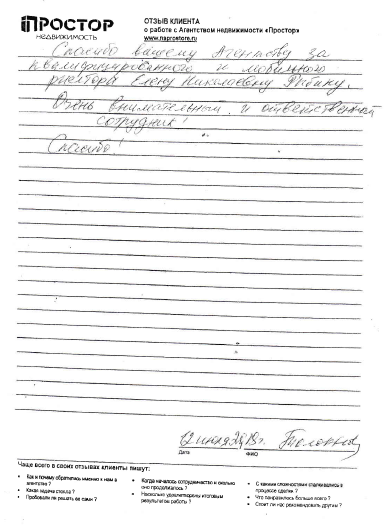 ПРОСТОР
НЕДВИЖИМОСТЬ
ОТЗЫВ КЛИЕНТА
о работе с Агентством недвижимости «Простор»
www.naprostore.ru
Спасибо вашему Агентству за
квалифицированного и мобильного
риелтора Елену Николаевну
Очень внимательный и ответственный
сотрудник!
Спасибо!
12 июля
Дата
ФИО
Чаще всего в своих отзывах клиенты пишут:
Как и почему обратились именно к нам в агентство ?
Какая задача стояла ?
Пробовали ли решать ее сами ?
Когда началось сотрудничество и сколько оно продолжалось ?
Насколько удовлетворены итоговым результатом работы ?
С какими сложностями сталкивались в процессе сделки ?
Что понравилось больше всего ?
Стоит ли нас рекомендовать другим ?